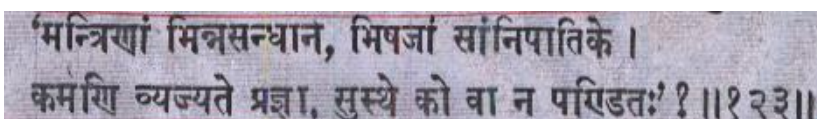 'मन्त्रिणां भिन्नसन्धाने, भिषजां सांनिपातिके ।
कर्मणि व्यज्यते प्रज्ञा, सुस्थे को वा न पण्डितः' ? ॥१२३॥